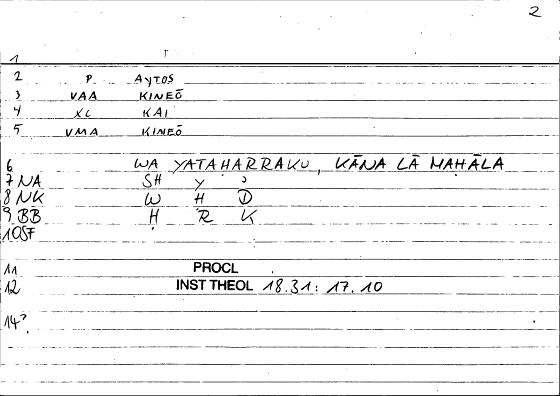 2
1
2 P AYTOS
3 VAA KINEŌ
4 XC KAI
5 VMA KINEŌ
6 WA YATAḤARRAKU, KĀNA LĀ MAḤĀLA
7 NA SH Y ʾ
8 NK W H D
9 BB Ḥ R K
10 SF
11 PROCL
12 INST THEOL 18.31: 17.10
14?